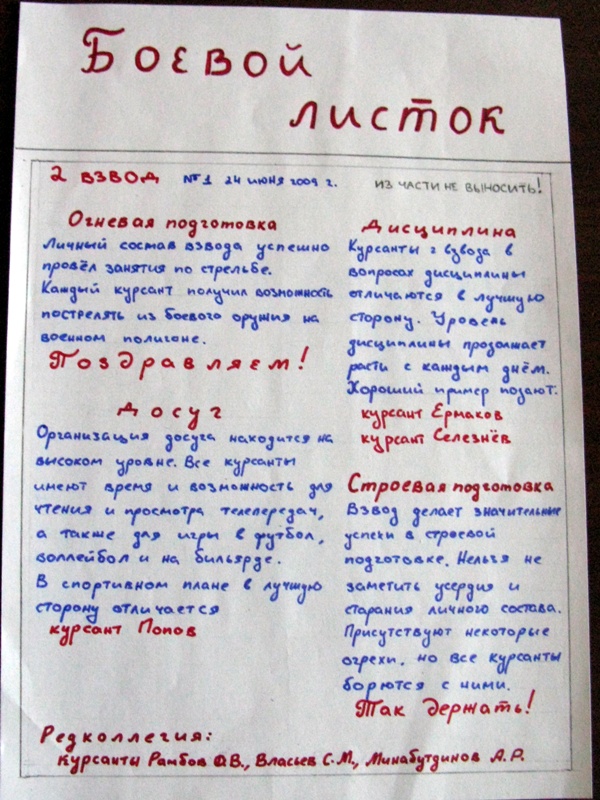 Боевой
листок
2 взвод №1 24 июня 2009 г. из части не выносить!
Огневая подготовка
Личный состав взвода успешно
провёл занятия по стрельбе.
Каждый курсант получил возможность
пострелять из боевого оружия на
военном полигоне.
Поздравляем!
Досуг
Организация досуга находится на
высоком уровне. Все курсанты
имеют время и возможность для
чтения и просмотра телепередач,
а также для игры в футбол,
воллейбол и на бильярде.
В спортивном плане в лучшую
сторону отличается
курсант Попов
Дисциплина
Курсанты 2 взвоза в
вопросах дисциплины
отличаются в лучшую
сторону. Уровень
дисциплины продолжает
расти с каждым днём.
Хороший пример подают:
курсант Ермаков
курсант Селезнёв
Строевая подготовка
Взвод делает значительные
успехи в строевой
подготовке. Нельзя не
заметить усердия и
старания личного состава.
Присутствуют некоторые
огрехи, но все курсанты
борются с ними.
Так держать!
Редколлегия:
курсанты Рамбов Ф.В., Власьев С.М., Минабутдинов А.Р.